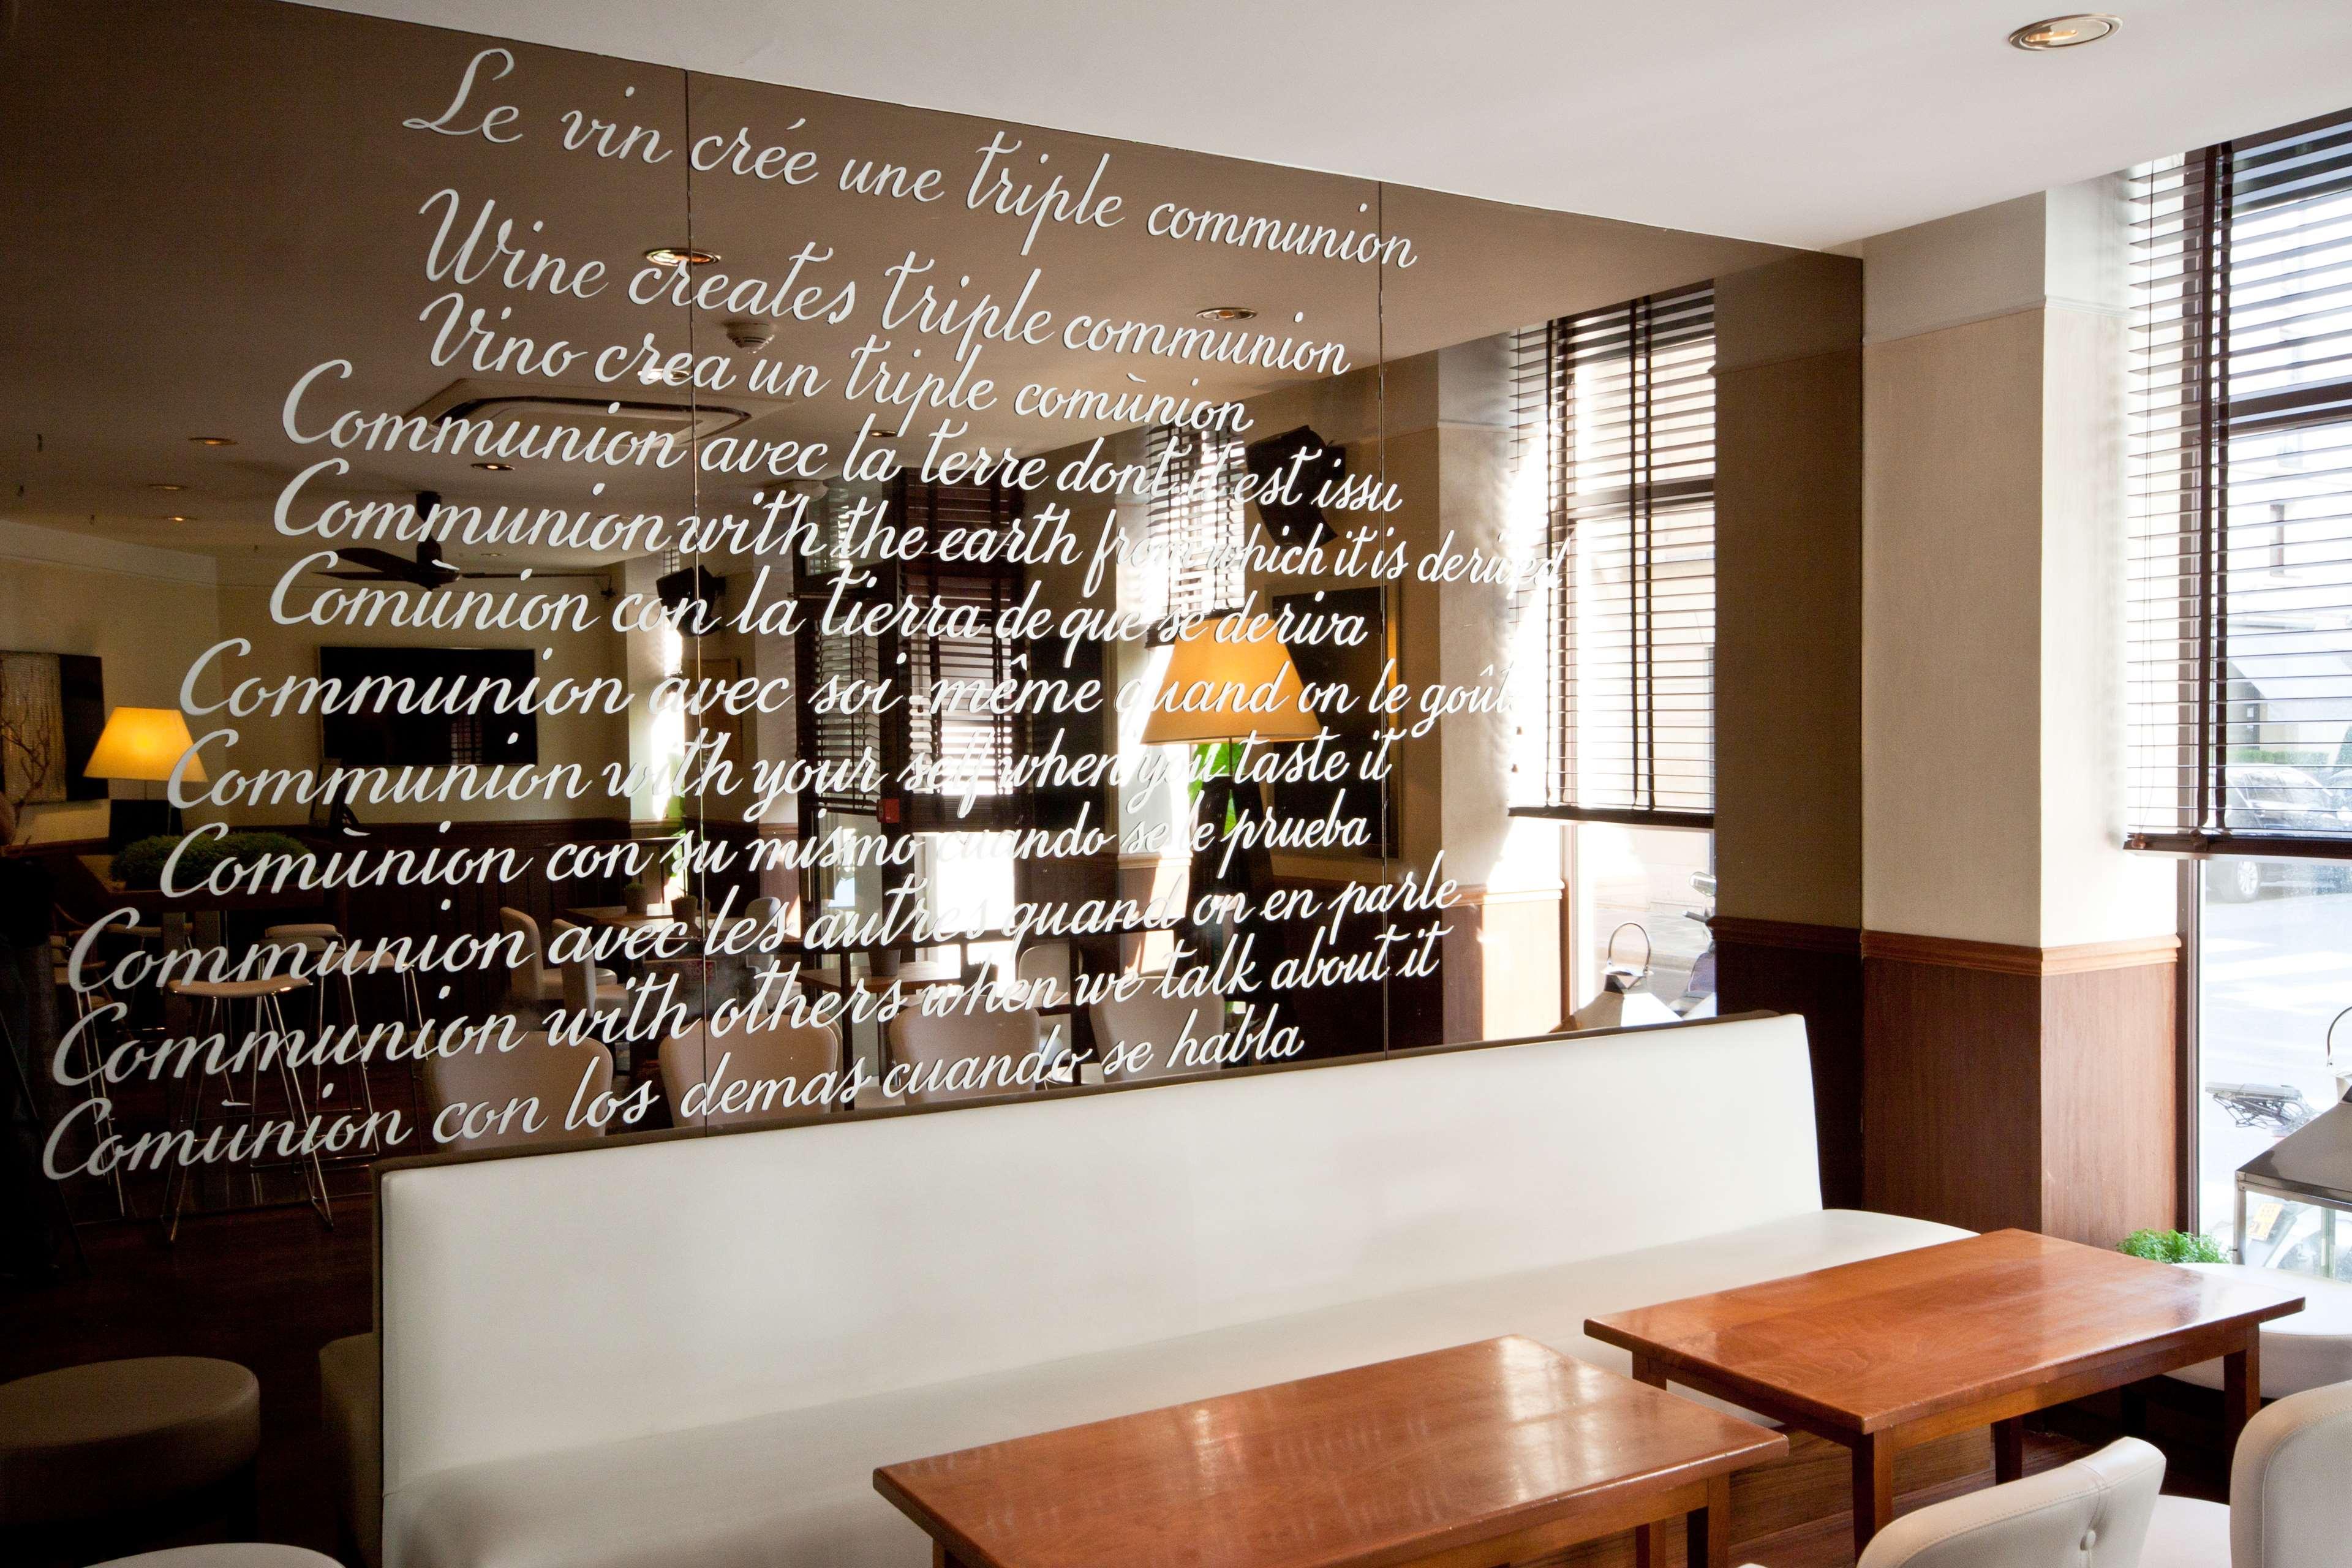 Le vin crée une triple communion
Wine creates triple communion
Vino crea un triple comùnion
Communion avec la terre dont il est issu
Communion with the earth from which it is derived
Comùnion con la tierra de que se deriva
Communion avec soi-même quand on le goût
Communion with your self when you taste it
Comùnion con su mismo cuando se le prueba
Communion avec les autres quand on en parle
Communion with others when we talk about it
Comùnion con los demas cuando se habla